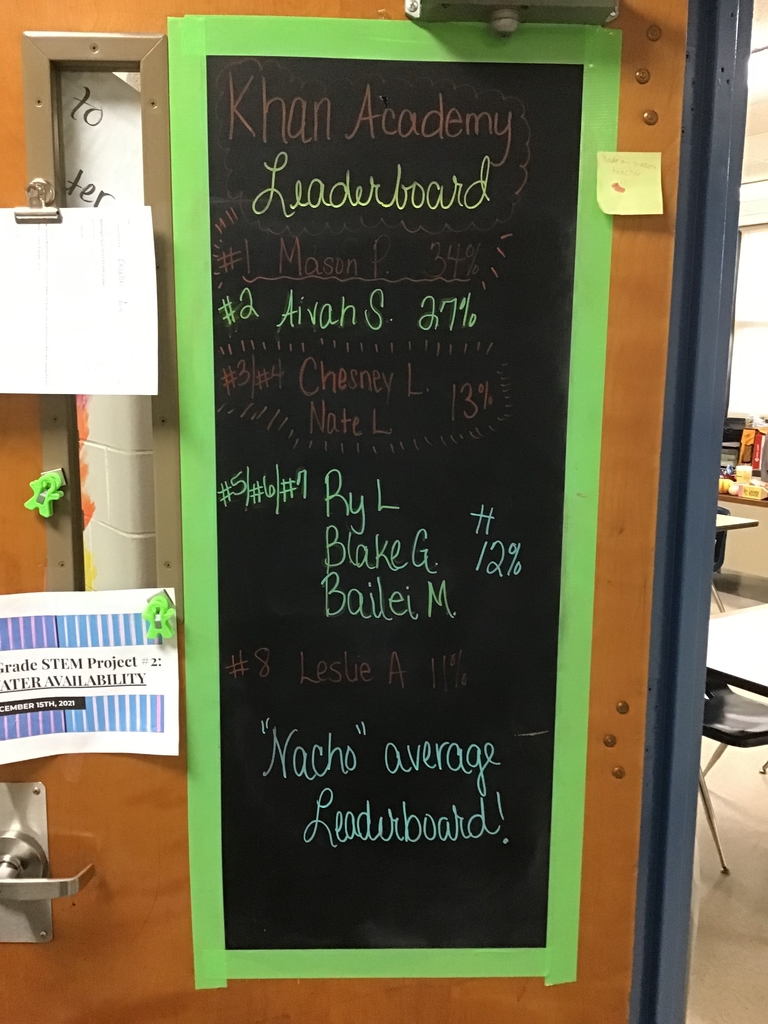 to
ter
Khan Academy
Leaderboard
#1 Mason P. 34%
#2 Aivah S. 27%
#3/#4 Chesney L. 13%
Nate L.
#5/#6/#7 Ry L #
Blake G. 12%
Bailei M.
#8 Leslie A 11%
"Nacho" average
Leaderboard!
Grade STEM Project #2:
ATER AVAILABILITY
CEMBER 15TH, 2021